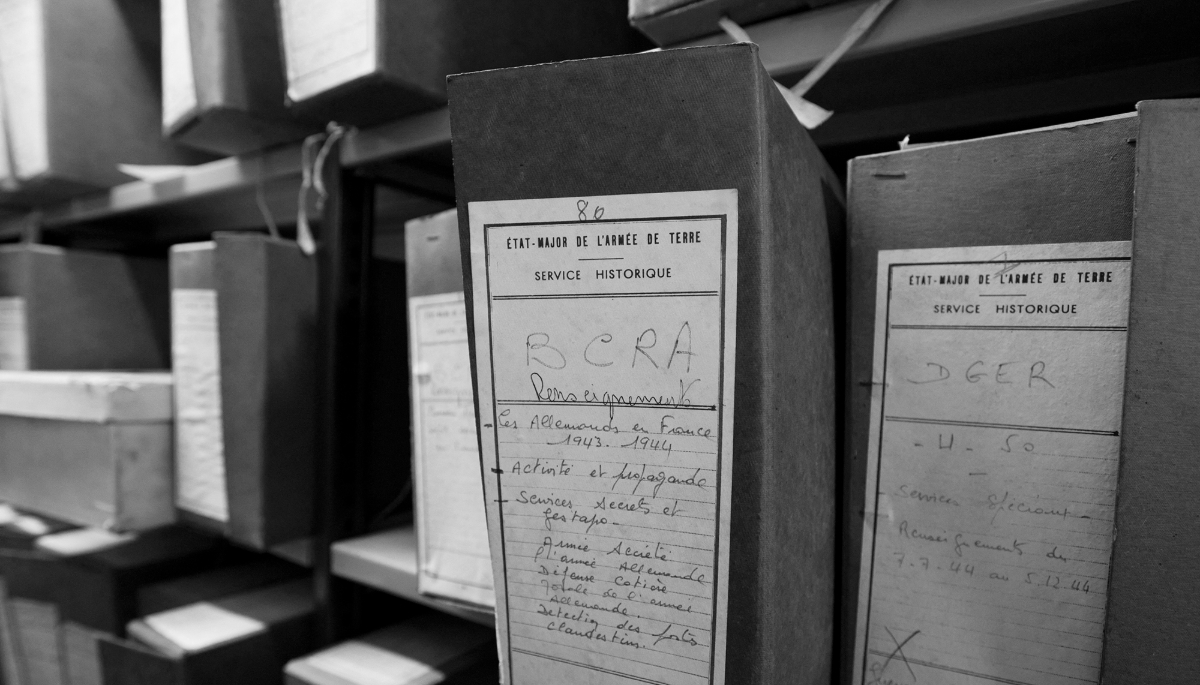 80
ÉTAT-MAJOR DE L'ARMÉE DE TERRE
SERVICE HISTORIQUE
BCRA
Renseignements
- Les Allemands en France
1943-1944
- Activité et propagande
- Services Secrets et
gestapo-
Armée Secrète
l'armée Allemande
Défense Cotière
de l'armée
Allemande
Detection des posts
clandestins.
ÉTAT-MAJOR DE L'ARMÉE DE TERRE
SERVICE HISTORIQUE
DGER
50
Services
Renseignements du
7.7.44 au 5.12.44